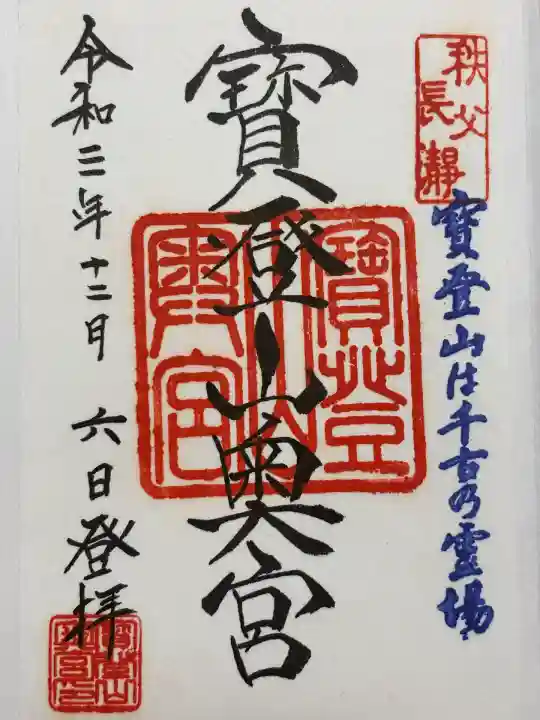 秩父
長瀞
寶登山は千古の霊場
寶登山奥宮
寶登山奥宮
令和三年十二月六日登拝